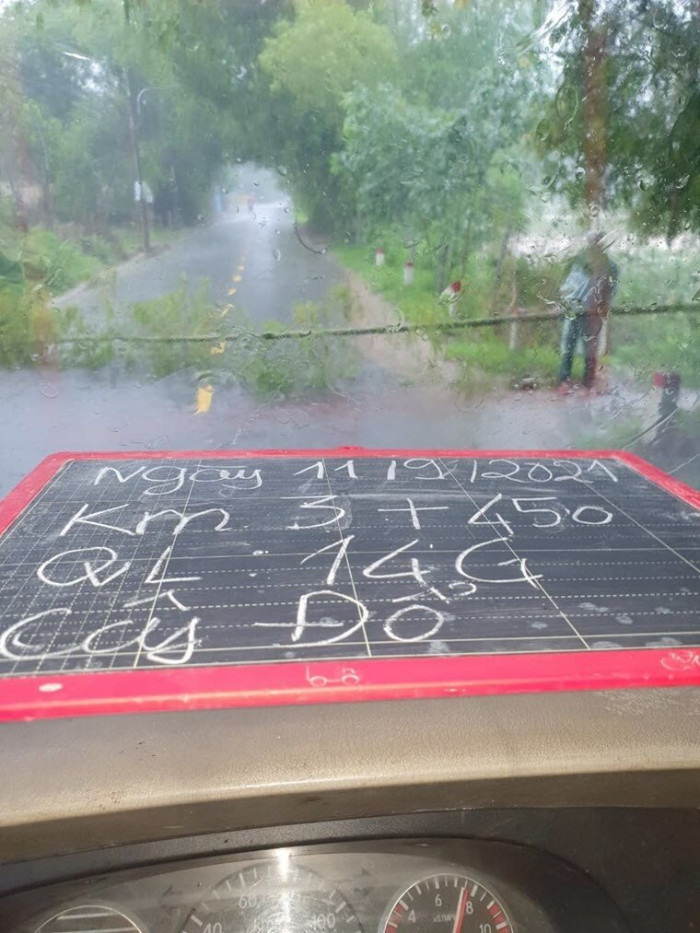 Ngày 11/9/2021
Km 3 + 450
QL 14G
Cây Đổ
60
40
100
4
6
8
10